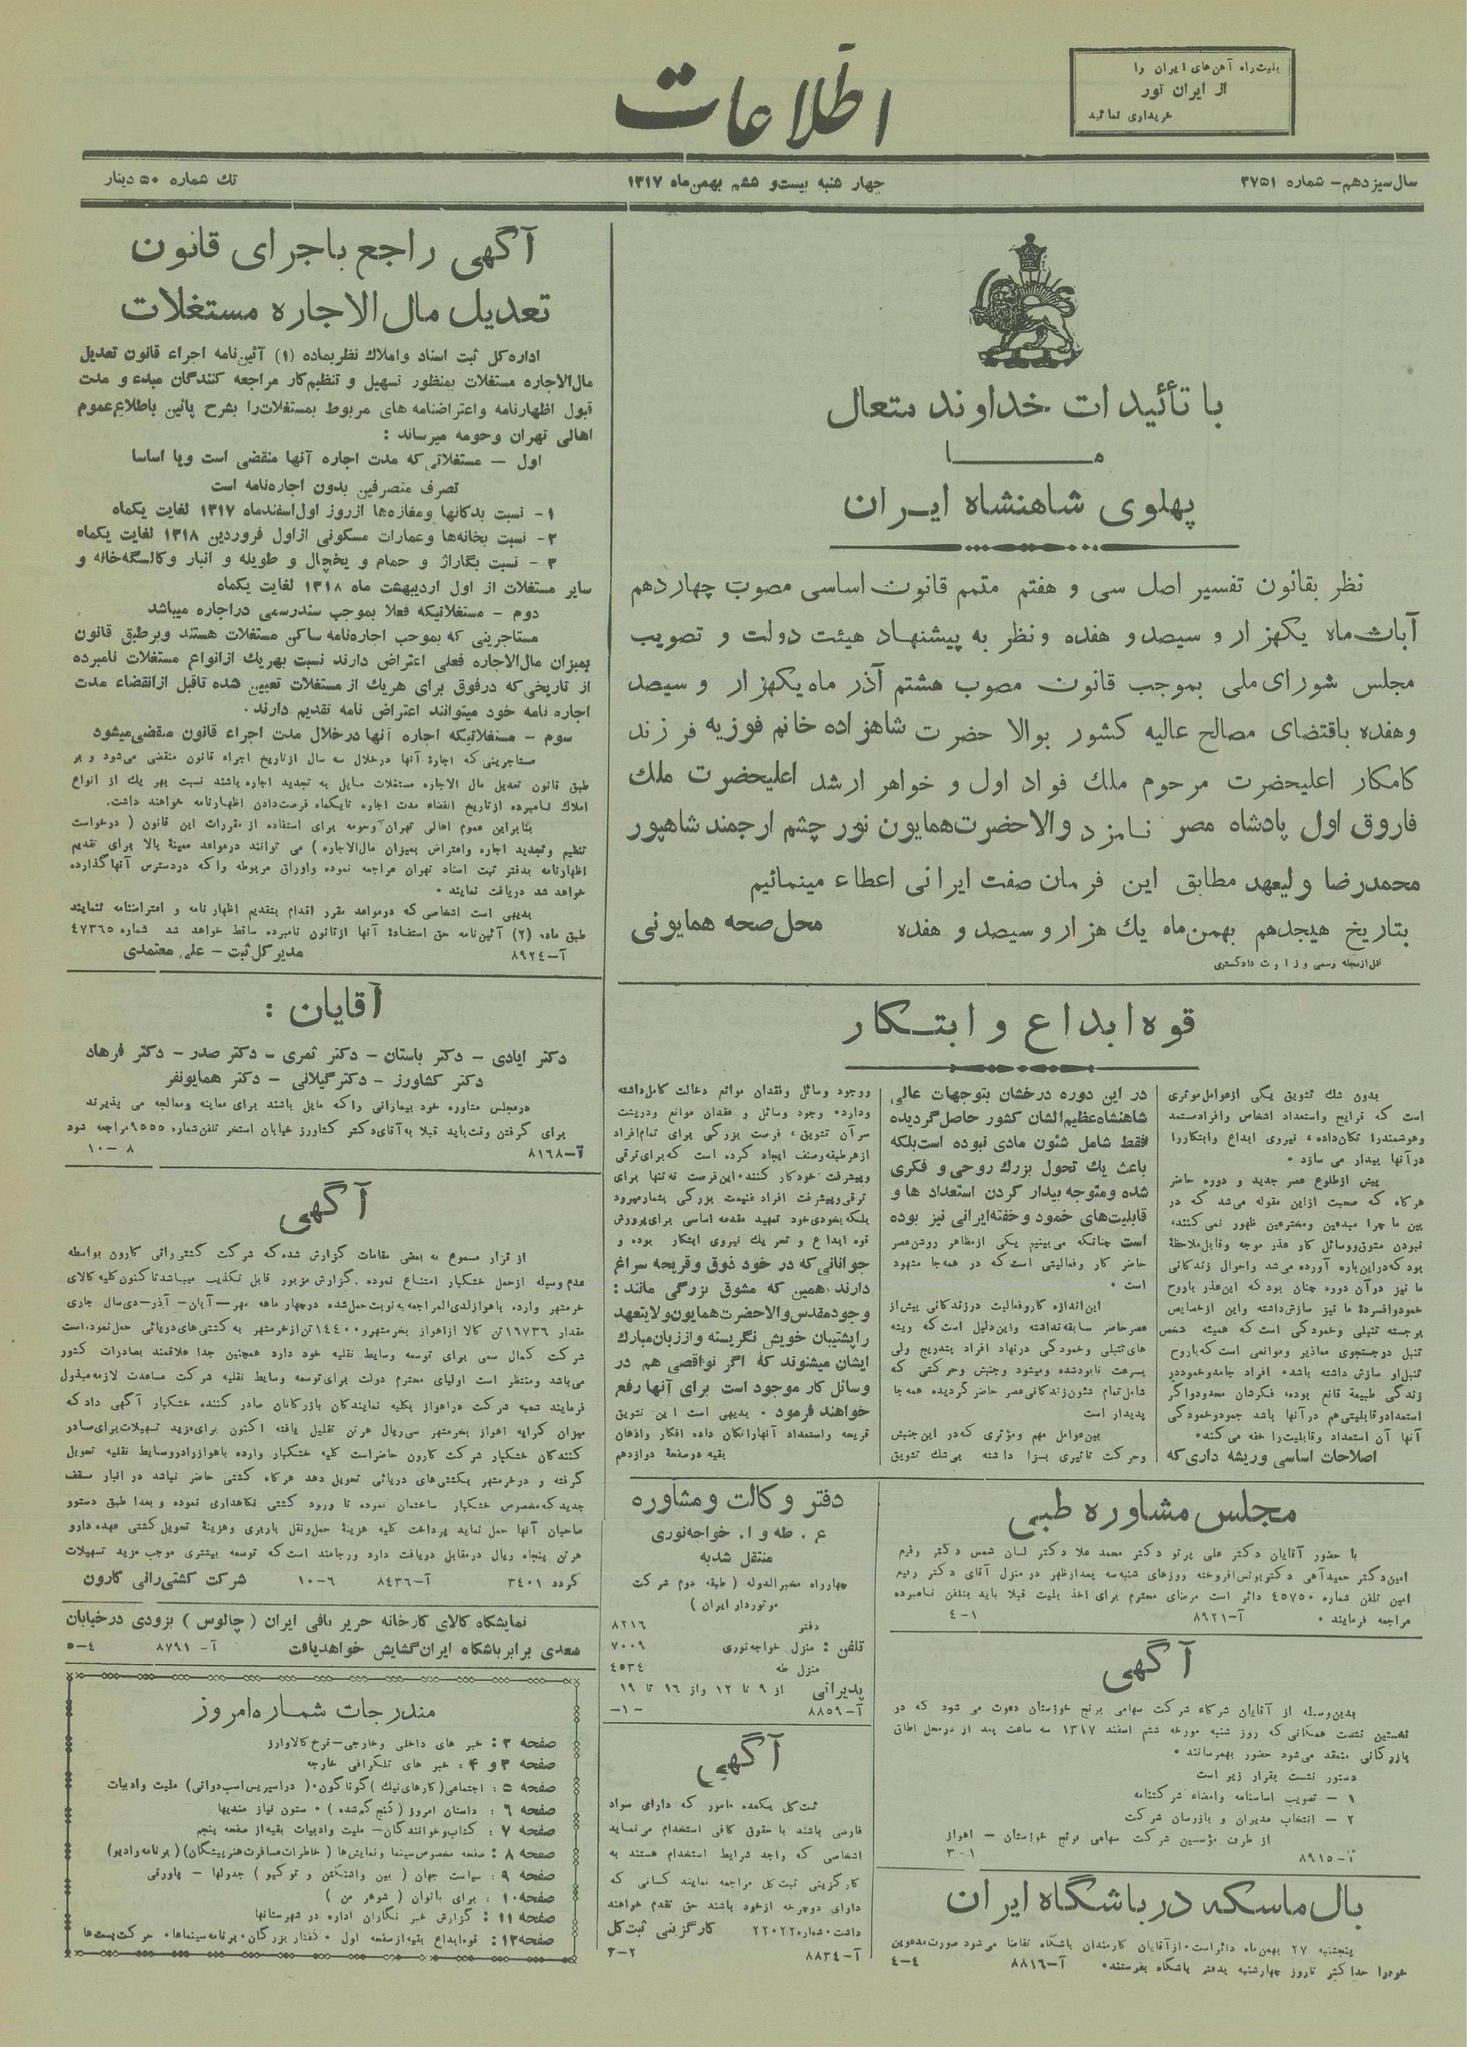 بلیت راه آهن‌های ایران را
از ایران تور
خریداری نمائید
اطلاعات
سال سیزدهم – شماره ۳۷۵۱
چهار شنبه بیست و ششم بهمن ماه ۱۳۱۷
تك شماره ۵۰ دینار
با تأئیدات خداوند متعال
مــا
پهلوی شاهنشاه ایران
نظر بقانون تفسیر اصل سی و هفتم متمم قانون اساسی مصوب چهاردهم
آبان ماه یکهزار و سیصد و هفده و نظر به پیشنهاد هیئت دولت و تصویب
مجلس شورای ملی بموجب قانون مصوب هشتم آذر ماه یکهزار و سیصد
و هفده باقتضای مصالح عالیه کشور بوالا حضرت شاهزاده خانم فوزیه فرزند
کامکار اعلیحضرت مرحوم ملك فواد اول و خواهر ارشد اعلیحضرت ملك
فاروق اول پادشاه مصر نامزد والاحضرت همایون نور چشم ارجمند شاهپور
محمدرضا ولیعهد مطابق این فرمان صفت ایرانی اعطاء مینمائیم
بتاریخ هیجدهم بهمن ماه یك هزار و سیصد و هفده محل صحه همایونی
نقل از مجله رسمی وزارت دادگستری
قوه ابداع و ابتکار
بدون شك تشویق یکی از عوامل موثری
است که قرایح و استعداد اشخاص و افراد مستعد
و هوشمند را تکان داده، نیروی ابداع و ابتکار را
در آنها بیدار می سازد.
پیش از طلوع عصر جدید و دوره حاضر
هرگاه که صحبت از این مقوله می‌شد که در
بین ما چرا مبدعین و مخترعین ظهور نمی‌کنند،
نبودن مشوق و وسائل کار عذر موجه و قابل ملاحظهٔ
بود که در این باره آورده می‌شد و احوال زندگانی
ما نیز در آن دوره چنان بود که این عذر با روح
خمود و افسردهٔ ما نیز سازش داشته و این از خصایص
برجسته تنبلی و خمودگی است که همیشه شخص
تنبل در جستجوی معاذیر و موانعی است که با روح
تنبل او سازش داشته باشد. افراد جامد و خمود در
زندگی طبیعةً قانع بوده، فکرشان محدود و اگر
استعداد و قابلیتی هم در آنها باشد جمود و خمودگی
آنها آن استعداد و قابلیت را خفه می‌کند.
اصلاحات اساسی و ریشه داری که
در این دوره درخشان بتوجهات عالی
شاهنشاه عظیم الشان کشور حاصل گردیده
فقط شامل شئون مادی نبوده است بلکه
باعث یك تحول بزرك روحی و فکری
شده و متوجه بیدار کردن استعداد ها و
قابلیت‌های خمود و خفته ایرانی نیز بوده
است چنانکه می‌بینیم یکی از مظاهر روشن عصر
حاضر کار و فعالیتی است که در همه جا مشهود
است.
این اندازه کار و فعالیت در زندگانی پیش از
عصر حاضر سابقه نداشته و این دلیل است که ریشه
های تنبلی و خمودگی در نهاد افراد بتدریج ولی
بسرعت نابود شده و میشود و جنبش و حرکتی که
شامل تمام شئون زندگانی عصر حاضر گردیده همه جا
پدیدار است
بین عوامل مهم و مؤثری که در این جنبش
و حرکت تاثیری بسزا داشته بی شك تشویق
و وجود وسائل و فقدان موانع دخالت کامل داشته
و دارد. وجود وسائل و فقدان موانع و در پشت
سر آن تشویق، فرصت بزرگی برای تمام افراد
از هر طبقه و صنف ایجاد کرده است که برای ترقی
و پیشرفت خود کار کنند. این فرصت نه تنها برای
ترقی و پیشرفت افراد غنیمت بزرگی بشمار میرود
بلکه بخودی خود تمهید مقدمه اساسی برای پرورش
قوه ابداع و تحریك نیروی ابتکار بوده و
جوانانی که در خود ذوق و قریحه سراغ
دارند، همین که مشوق بزرگی مانند:
وجود مقدس والاحضرت همایون ولایتعهد
را پشتیبان خویش نگریسته و از زبان مبارك
ایشان میشنوند که اگر نواقصی هم در
وسائل کار موجود است برای آنها رفع
خواهند فرمود. بدیهی است این تشویق
قریحه و استعداد آنها را تکان داده افکار و اذهان
بقیه در صفحهٔ دوازدهم
مجلس مشاوره طبی
با حضور آقایان دکتر علی پرتو دکتر محمد علا دکتر لسان شمس دکتر رفیع
امین دکتر حمید آهی دکتر یونس افروخته روزهای شنبه سه بعد از ظهر در منزل آقای دکتر رفیع
امین تلفن شماره ۴۵۷۵۰ دائر است مرضای محترم برای اخذ بلیت قبلا باید بتلفن نامبرده
مراجعه فرمایند. آ–۸۹۲۱ ۱–۴
آگهی
بدین وسیله از آقایان شرکاء شرکت سهامی برنج خوزستان دعوت می شود که در
نخستین نشست همگانی که روز شنبه مورخه ششم اسفند ۱۳۱۷ سه ساعت بعد از در محل اطاق
بازرگانی منعقد می‌شود حضور بهم رسانند.
دستور نشست بقرار زیر است
۱ – تصویب اساسنامه و امضاء شرکتنامه
۲ – انتخاب مدیران و بازرسان شرکت
از طرف مؤسسین شرکت سهامی برنج خوزستان – اهواز
آ–۸۹۱۵ ۱–۳
بال ماسکه در باشگاه ایران
پنجشنبه ۲۷ بهمن ماه دائر است. از آقایان کارمندان باشگاه تقاضا می‌شود صورت مدعوین
خود را حداکثر تا روز چهارشنبه بدفتر باشگاه بفرستند. آ–۸۸۱۶ ۴–۴
دفتر وکالت و مشاوره
ع. طه و ا. خواجه نوری
منتقل شد به
چهارراه مخبرالدوله (طبقه دوم شرکت
موتوردار ایران)
دفتر ۸۲۱۶
تلفن: منزل خواجه نوری ۷۰۰۹
منزل طه ۴۵۳۴
پذیرائی از ۹ تا ۱۲ و از ۱۶ تا ۱۹
آ–۸۸۵۹ –۱۰
آگهی
ثبت کل یکعده مامور که دارای سواد
فارسی باشند با حقوق کافی استخدام می نماید
اشخاصی که واجد شرایط استخدام هستند به
کارگزینی ثبت کل مراجعه نمایند کسانی که
دارای دوچرخه از خود باشند حق تقدم خواهند
داشت. شماره ۲۲۰۲۲ کارگزینی ثبت کل
آ–۸۸۳۴ ۲–۳
آگهی راجع باجرای قانون
تعدیل مال الاجاره مستغلات
اداره کل ثبت اسناد و املاك نظر بماده (۱) آئین نامه اجراء قانون تعدیل
مال‌الاجاره مستغلات بمنظور تسهیل و تنظیم کار مراجعه کنندگان مبدء و مدت
قبول اظهارنامه و اعتراضنامه های مربوط بمستغلات را بشرح پائین باطلاع عموم
اهالی تهران و حومه میرساند:
اول – مستغلاتی که مدت اجاره آنها منقضی است و یا اساسا
تصرف متصرفین بدون اجاره‌نامه است
۱– نسبت بدکانها و مغازه‌ها از روز اول اسفندماه ۱۳۱۷ لغایت یکماه
۲– نسبت بخانه‌ها و عمارات مسکونی از اول فروردین ۱۳۱۸ لغایت یکماه
۳ – نسبت بگاراژ و حمام و یخچال و طویله و انبار و کالسگه خانه و
سایر مستغلات از اول اردیبهشت ماه ۱۳۱۸ لغایت یکماه
دوم – مستغلاتیکه فعلا بموجب سند رسمی در اجاره میباشد
مستاجرینی که بموجب اجاره‌نامه ساکن مستغلات هستند و بر طبق قانون
بمیزان مال‌الاجاره فعلی اعتراض دارند نسبت بهر یك از انواع مستغلات نامبرده
از تاریخی که در فوق برای هر یك از مستغلات تعیین شده تا قبل از انقضاء مدت
اجاره نامه خود میتوانند اعتراض نامه تقدیم دارند.
سوم – مستغلاتیکه اجاره آنها در خلال مدت اجراء قانون منقضی میشود
مستاجرینی که اجارهٔ آنها در خلال سه سال از تاریخ اجراء قانون منقضی می‌شود و بر
طبق قانون تعدیل مال الاجاره مستغلات مایل به تجدید اجاره باشند نسبت بهر یك از انواع
املاك نامبرده از تاریخ انقضاء مدت اجاره تا یکماه فرصت دادن اظهارنامه خواهند داشت.
بنابراین عموم اهالی تهران و حومه برای استفاده از مقررات این قانون (درخواست
تنظیم و تجدید اجاره و اعتراض بمیزان مال‌الاجاره) می توانند در مواعد معینهٔ بالا برای تقدیم
اظهارنامه بدفتر ثبت اسناد تهران مراجعه نموده و اوراق مربوطه را که در دسترس آنها گذارده
خواهد شد دریافت نمایند.
بدیهی است اشخاصی که در مواعد مقرر اقدام بتقدیم اظهار نامه و اعتراضنامه ننمایند
طبق ماده (۲) آئین‌نامه حق استفادهٔ آنها از قانون نامبرده ساقط خواهد شد شماره ۴۷۳۶۵
آ–۸۹۲۴ مدیر کل ثبت – علی معتمدی
آقایان:
دکتر ایادی – دکتر باستان – دکتر ثمری – دکتر صدر – دکتر فرهاد
دکتر کشاورز – دکتر گیلانی – دکتر همایونفر
در مجلس مشاوره خود بیمارانی را که مایل باشند برای معاینه و معالجه می پذیرند
برای گرفتن وقت باید قبلا به آقای دکتر کشاورز خیابان استخر تلفن شماره ۹۵۵۵ مراجعه شود
آ–۸۱۶۸ ۸–۱۰
آگهی
از قرار مسموع به بعضی مقامات گزارش شده که شرکت کشتی‌رانی کارون بواسطه
عدم وسیله از حمل خشکبار امتناع نموده. گزارش مزبور قابل تکذیب میباشد تا کنون کلیه کالای
خرمشهر وارده باهواز لدی المراجعه به نوبت حمل شده در چهار ماهه مهر – آبان – آذر – دی سال جاری
مقدار ۱۶۷۳۶ تن کالا از اهواز بخرمشهر و ۱۴۴۰۰ تن از خرمشهر به کشتی‌های دریائی حمل نمود، است
شرکت کمال سعی برای توسعه وسایط نقلیه خود دارد همچنین جدا علاقمند بصادرات کشور
می‌باشد و منتظر است اولیای محترم دولت برای توسعه وسایط نقلیه شرکت مساعدت لازمه مبذول
فرمایند شعبه شرکت در اهواز بکلیه نمایندگان بازرگانان صادر کننده خشکبار آگهی داد که
میزان کرایه اهواز بخرمشهر سی ریال هر تن تقلیل یافته اکنون برای مزید تسهیلات برای صادر
کنندگان خشکبار شرکت کارون حاضر است کلیه خشکبار وارده باهواز را در وسایط نقلیه تحویل
گرفته و در خرمشهر بکشتی‌های دریائی تحویل دهد هرگاه کشتی حاضر نباشد در انبار مسقف
جدید که مخصوص خشکبار ساختمان نموده تا ورود کشتی نگاهداری نموده و بعدا طبق دستور
صاحبان آنها حمل نماید پرداخت کلیه هزینهٔ حمل و نقل باربری و هزینهٔ تحویل کشتی عهده دارو
هر تن پنجاه ریال در مقابل دریافت دارد و رجامند است که توسعه بیشتری موجب مزید تسهیلات
گردد ۳۴۰۱ آ–۸۴۳۶ ۶–۱۰ شرکت کشتی‌رانی کارون
نمایشگاه کالای کارخانه حریر بافی ایران (چالوس) بزودی در خیابان
سعدی برابر باشگاه ایران گشایش خواهد یافت آ–۸۷۹۱ ۴–۵
مندرجات شماره امروز
صفحه ۲: خبر های داخلی و خارجی – نرخ کالا و ارز
صفحه ۳ و ۴: خبر های تلگرافی خارجه
صفحه ۵: اجتماعی (کارهای نیك) گوناگون. (در اسپریس اسب دوانی) ملیت و ادبیات
صفحه ۶: داستان امروز (گنج گم شده). ستون نیاز مندیها
صفحه ۷: کتاب و خوانندگان – ملیت و ادبیات بقیه از صفحه پنجم
صفحه ۸: صفحه مخصوص سینما و نمایش‌ها (خاطرات مسافرت هنرپیشگان) (برنامه رادیو)
صفحه ۹: سیاست جهان (بین واشنگتن و توکیو) جدولها – پاورقی
صفحه ۱۰: برای بانوان (شوهر من)
صفحه ۱۱: گزارش خبر نگاران اداره در شهرستانها
صفحه ۱۲: قوه ابداع بقیه از صفحه اول. گفتار بزرگان. برنامه سینماها. حرکت پست‌ها